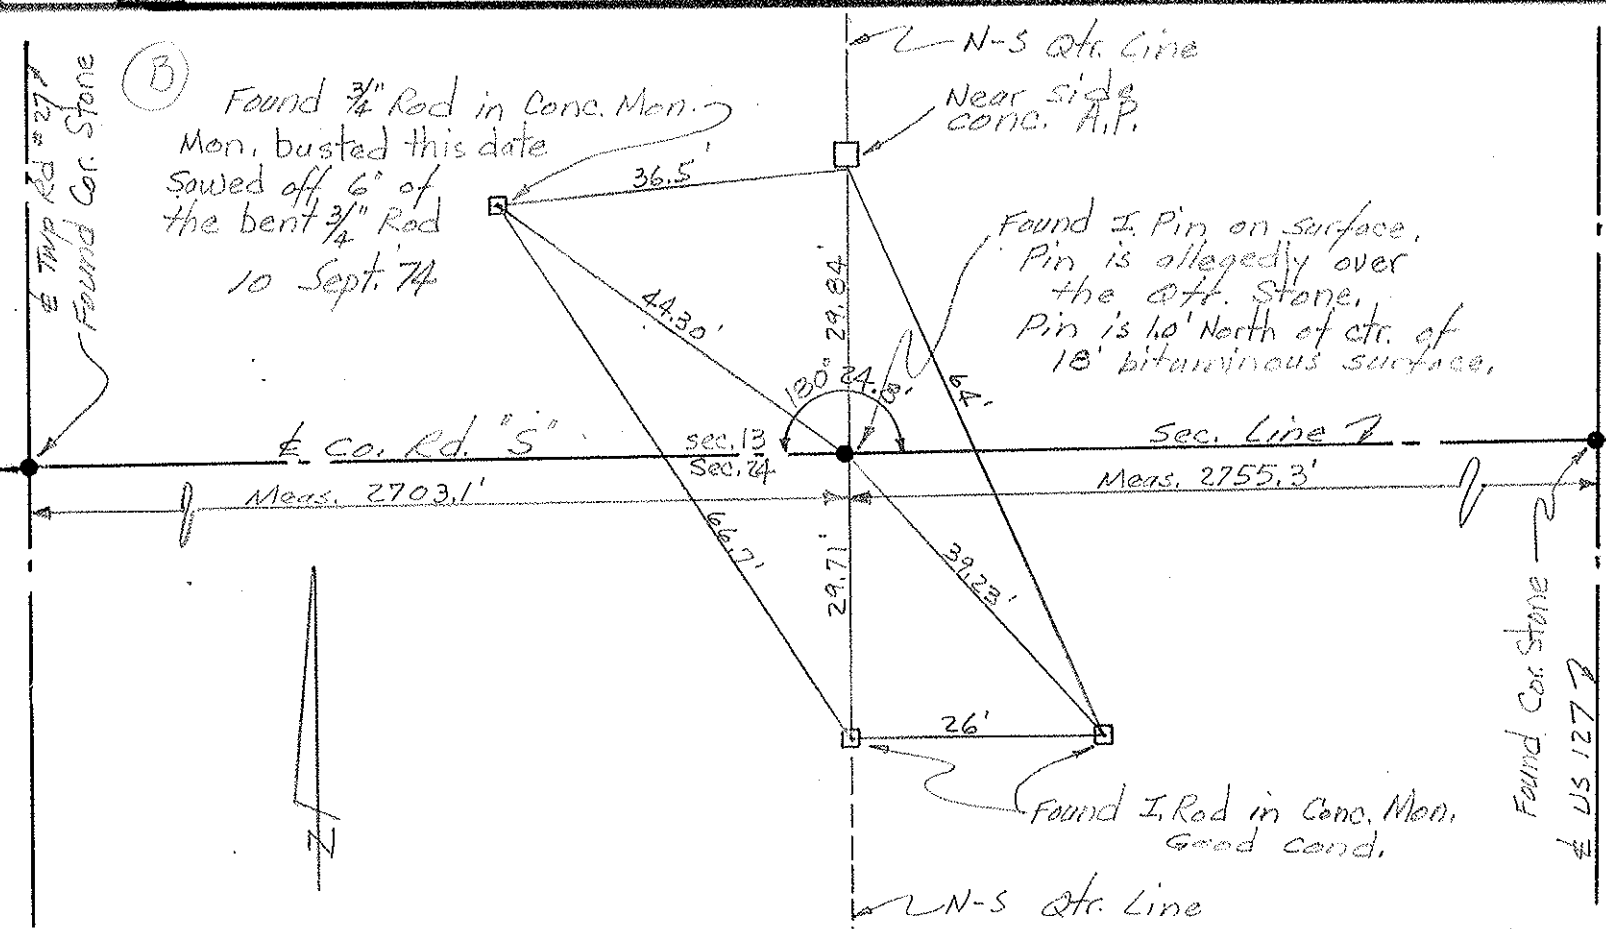 B
℄ Twp Rd #27
Found Cor. Stone
Found 3/4" Rod in Conc. Mon.
Mon. busted this date
Sawed off 6" of
the bent 3/4" Rod
10 Sept. 74
N-S Qtr. Line
Near side
conc. A.P.
36.5'
Found I. Pin on surface.
Pin is allegedly over
the Qtr. Stone.
Pin is 1.0' North of ctr. of
18' bituminous surface.
29.84'
44.30'
64'
180° 24.8'
℄ Co. Rd. "S"
sec. 13
Sec. 24
Sec. Line
Meas. 2703.1'
Meas. 2755.3'
66.7'
29.71'
39.23'
26'
Found I. Rod in Conc. Mon.
Good cond.
N
N-S Qtr. Line
Found Cor. Stone
℄ US 127